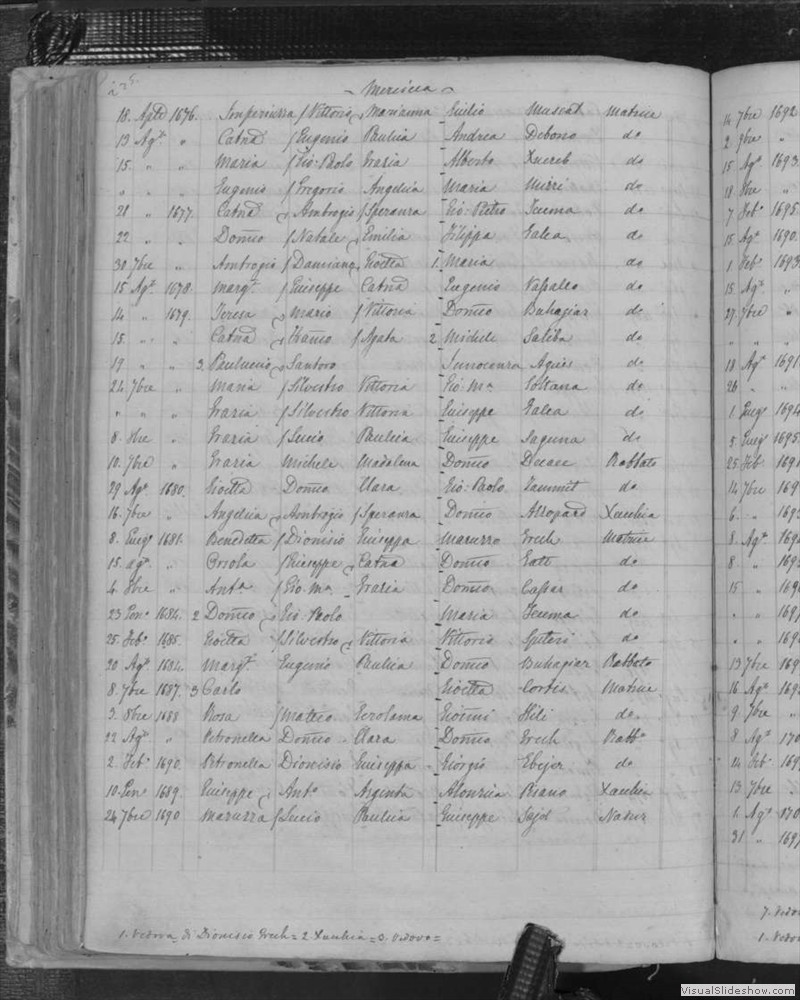 ~ Mericica ~
18. Aple 1676. Imperiuzza Vittorio Marianna Giulio Muscat Matrice
13 Agto " Catna Eugenio Paulica Andrea Debono do
15. " " Maria Gio: Paolo Grazia Alberto Xuereb do
" " " Eugenio Gregorio Angelica Maria Mizzi do
21 " 1677. Catna Ambrogio Speranza Gio: Pietro Zeuma do
22 " " Domco Natale Emilia Filippa Galea do
30 7bre " Ambrogio Damiano Gioetta 1. Maria do
15 Agto 1678. Margta Giuseppe Catna Eugenio Vassallo do
14 " 1679. Teresa Mario Vittoria Domco Buhagiar do
15. " " Catna Agata 2 Michele Saliba do
19 " " 3. Pauluccio Santoro Innocenza Agius do
24 7bre " Maria Silvestro Vittoria Gio: Ma Soltana do
" " " Grazia Silvestro Vittoria Giuseppe Galea do
8. " Grazia Lucio Paulica Giuseppe Laguna do
10. 7bre " Grazia Michele Madalena Domco Rabbato
29 Agto 1680. Gioetta Domco Clara Gio: Paolo Tammit do
16. 7bre " Angelica Ambrogio Speranza Domco Attopard Xeuchia
8. Giugo 1681. Benedetta Dionisio Giuseppa Maruzzo Grech Matrice
15. agto " Orsola Giuseppe Catna Domco Gatt do
4. " Anta Gio: Ma Grazia Domco Cassar do
23 Geno 1684. 2 Domco Gio Paolo Maria Zeuma do
25. Febo 1685. Gioetta Silvestro Vittoria Vittorio Spiteri do
20 Agto 1684. Margta Eugenio Paulica Domco Buhagiar Rabbato
8. 7bre 1687. 3 Carlo Gioetta Cortis Matrice
3. 8bre 1688 Rosa Matteo Gerolama Gioanni Hili do
22 Agto " Petronella Domco Clara Domco Grech Rabbo
2. Febo 1690. Petronella Dionisio Giuseppa Giorgio Ebejer do
10. Geno 1689. Giuseppe Anto Argenta Alonzia Xeuchia
24 7bre 1690 Maruzza Lucio Paulica Giuseppe Sajd Nadur
1. Vedova di Dionisio Grech = 2 Xeuchia = 3. Vedovo =
14 7bre 1692
2 9bre "
15 Agto 1693
18 "
7 Febo 1695.
15 Agto 1690.
1 Febo 1693
15 Agto "
27. 7bre "
" " "
18 Agto 1691
26 " "
1. Giugo 1694
5 Giugo 1695
25 Febo 169
14 7bre 169
6 " 169
8. Agto 169
8 " 169
15 " 169
" " 169
" " 169
13 7bre 169
16 Agto 169
9 7bre "
8 Agto 170
14 Febo 169
13 7bre "
1. Agto 170
31 " 169
7. Vedov
1. Vedov
VisualSlideshow.com